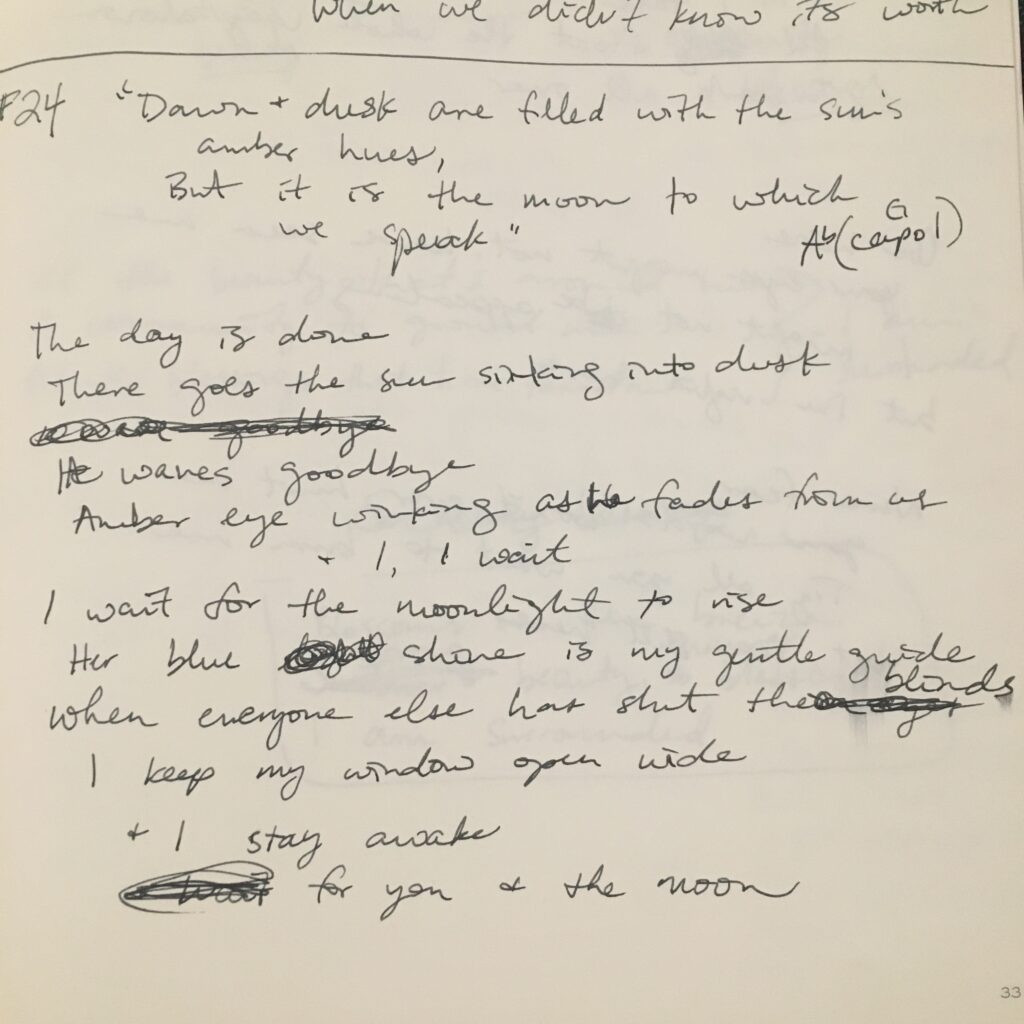 When we didn't know its worth
F24 "Dawn + dusk are filled with the sun's
amber hues,
But it is the moon to which
we speak"
G
Ab (capo 1)
The day is done
There goes the sun sinking into dusk
goodbye
He waves goodbye
Amber eye winking as he fades from us
+ I, I wait
I wait for the moonlight to rise
Her blue shone is my gentle guide
blinds
When everyone else has shut the
I keep my window open wide
+ I stay awake
wait for you + the moon
33